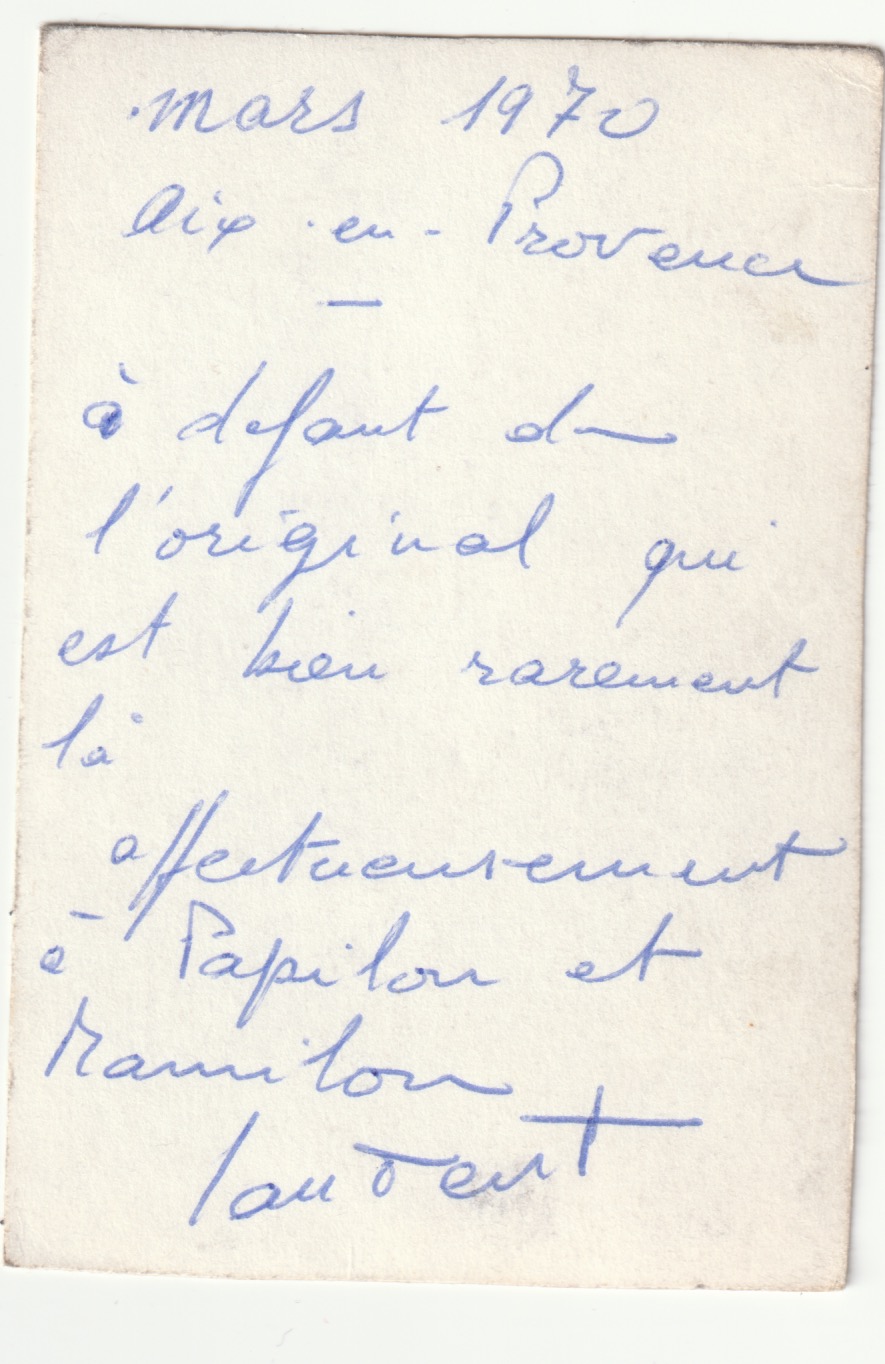 mars 1970
Aix-en-Provence
—
à defaut de
l'original qui
est bien rarement
là
affectueusement
à Papilou et
Mamilou
Laurent